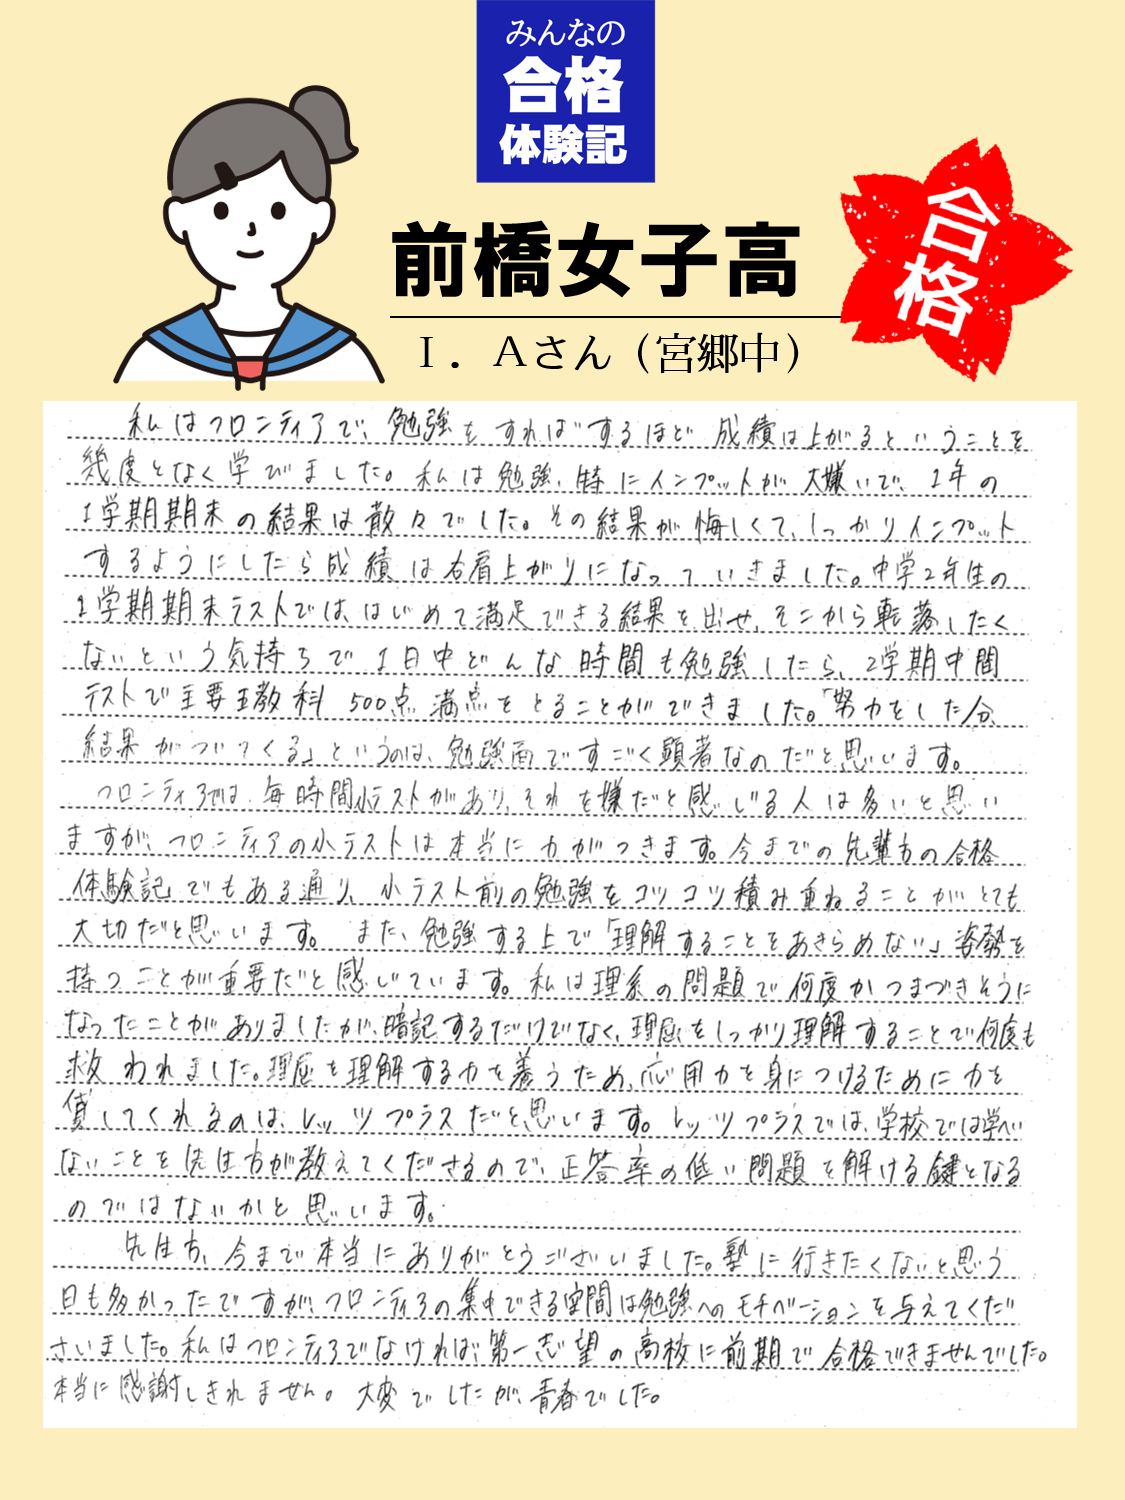 みんなの
合格
体験記
合格
前橋女子高
I．Aさん（宮郷中）
私はフロンティアで、勉強をすればするほど成績は上がるということを
幾度となく学びました。私は勉強、特にインプットが大嫌いで、1年の
1学期期末の結果は散々でした。その結果が悔しくて、しっかりインプット
するようにしたら成績は右肩上がりになっていきました。中学2年生の
1学期期末テストでは、はじめて満足できる結果を出せ、そこから転落したく
ないという気持ちで1日中どんな時間も勉強したら、2学期中間
テストで主要五教科500点満点をとることができました。「努力をした分、
結果がついてくる」というのは、勉強面ですごく顕著なのだと思います。
フロンティアでは、毎時間小テストがあり、それを嫌だと感じる人は多いと思い
ますが、フロンティアの小テストは本当に力がつきます。今までの先輩方の合格
体験記でもある通り、小テスト前の勉強をコツコツ積み重ねることがとても
大切だと思います。また、勉強する上で「理解することをあきらめない」姿勢を
持つことが重要だと感じています。私は理系の問題で何度かつまづきそうに
なったことがありましたが、暗記するだけでなく、理屈をしっかり理解することで何度も
救われました。理屈を理解する力を養うため、応用力を身につけるために力を
貸してくれるのは、レッツプラスだと思います。レッツプラスでは、学校では学べ
ないことを先生方が教えてくださるので、正答率の低い問題を解ける鍵となる
のではないかと思います。
先生方、今まで本当にありがとうございました。塾に行きたくないと思う
日も多かったですが、フロンティアの集中できる空間は勉強へのモチベーションを与えてくだ
さいました。私はフロンティアでなければ、第一志望の高校に前期で合格できませんでした。
本当に感謝しきれません。大変でしたが、青春でした。